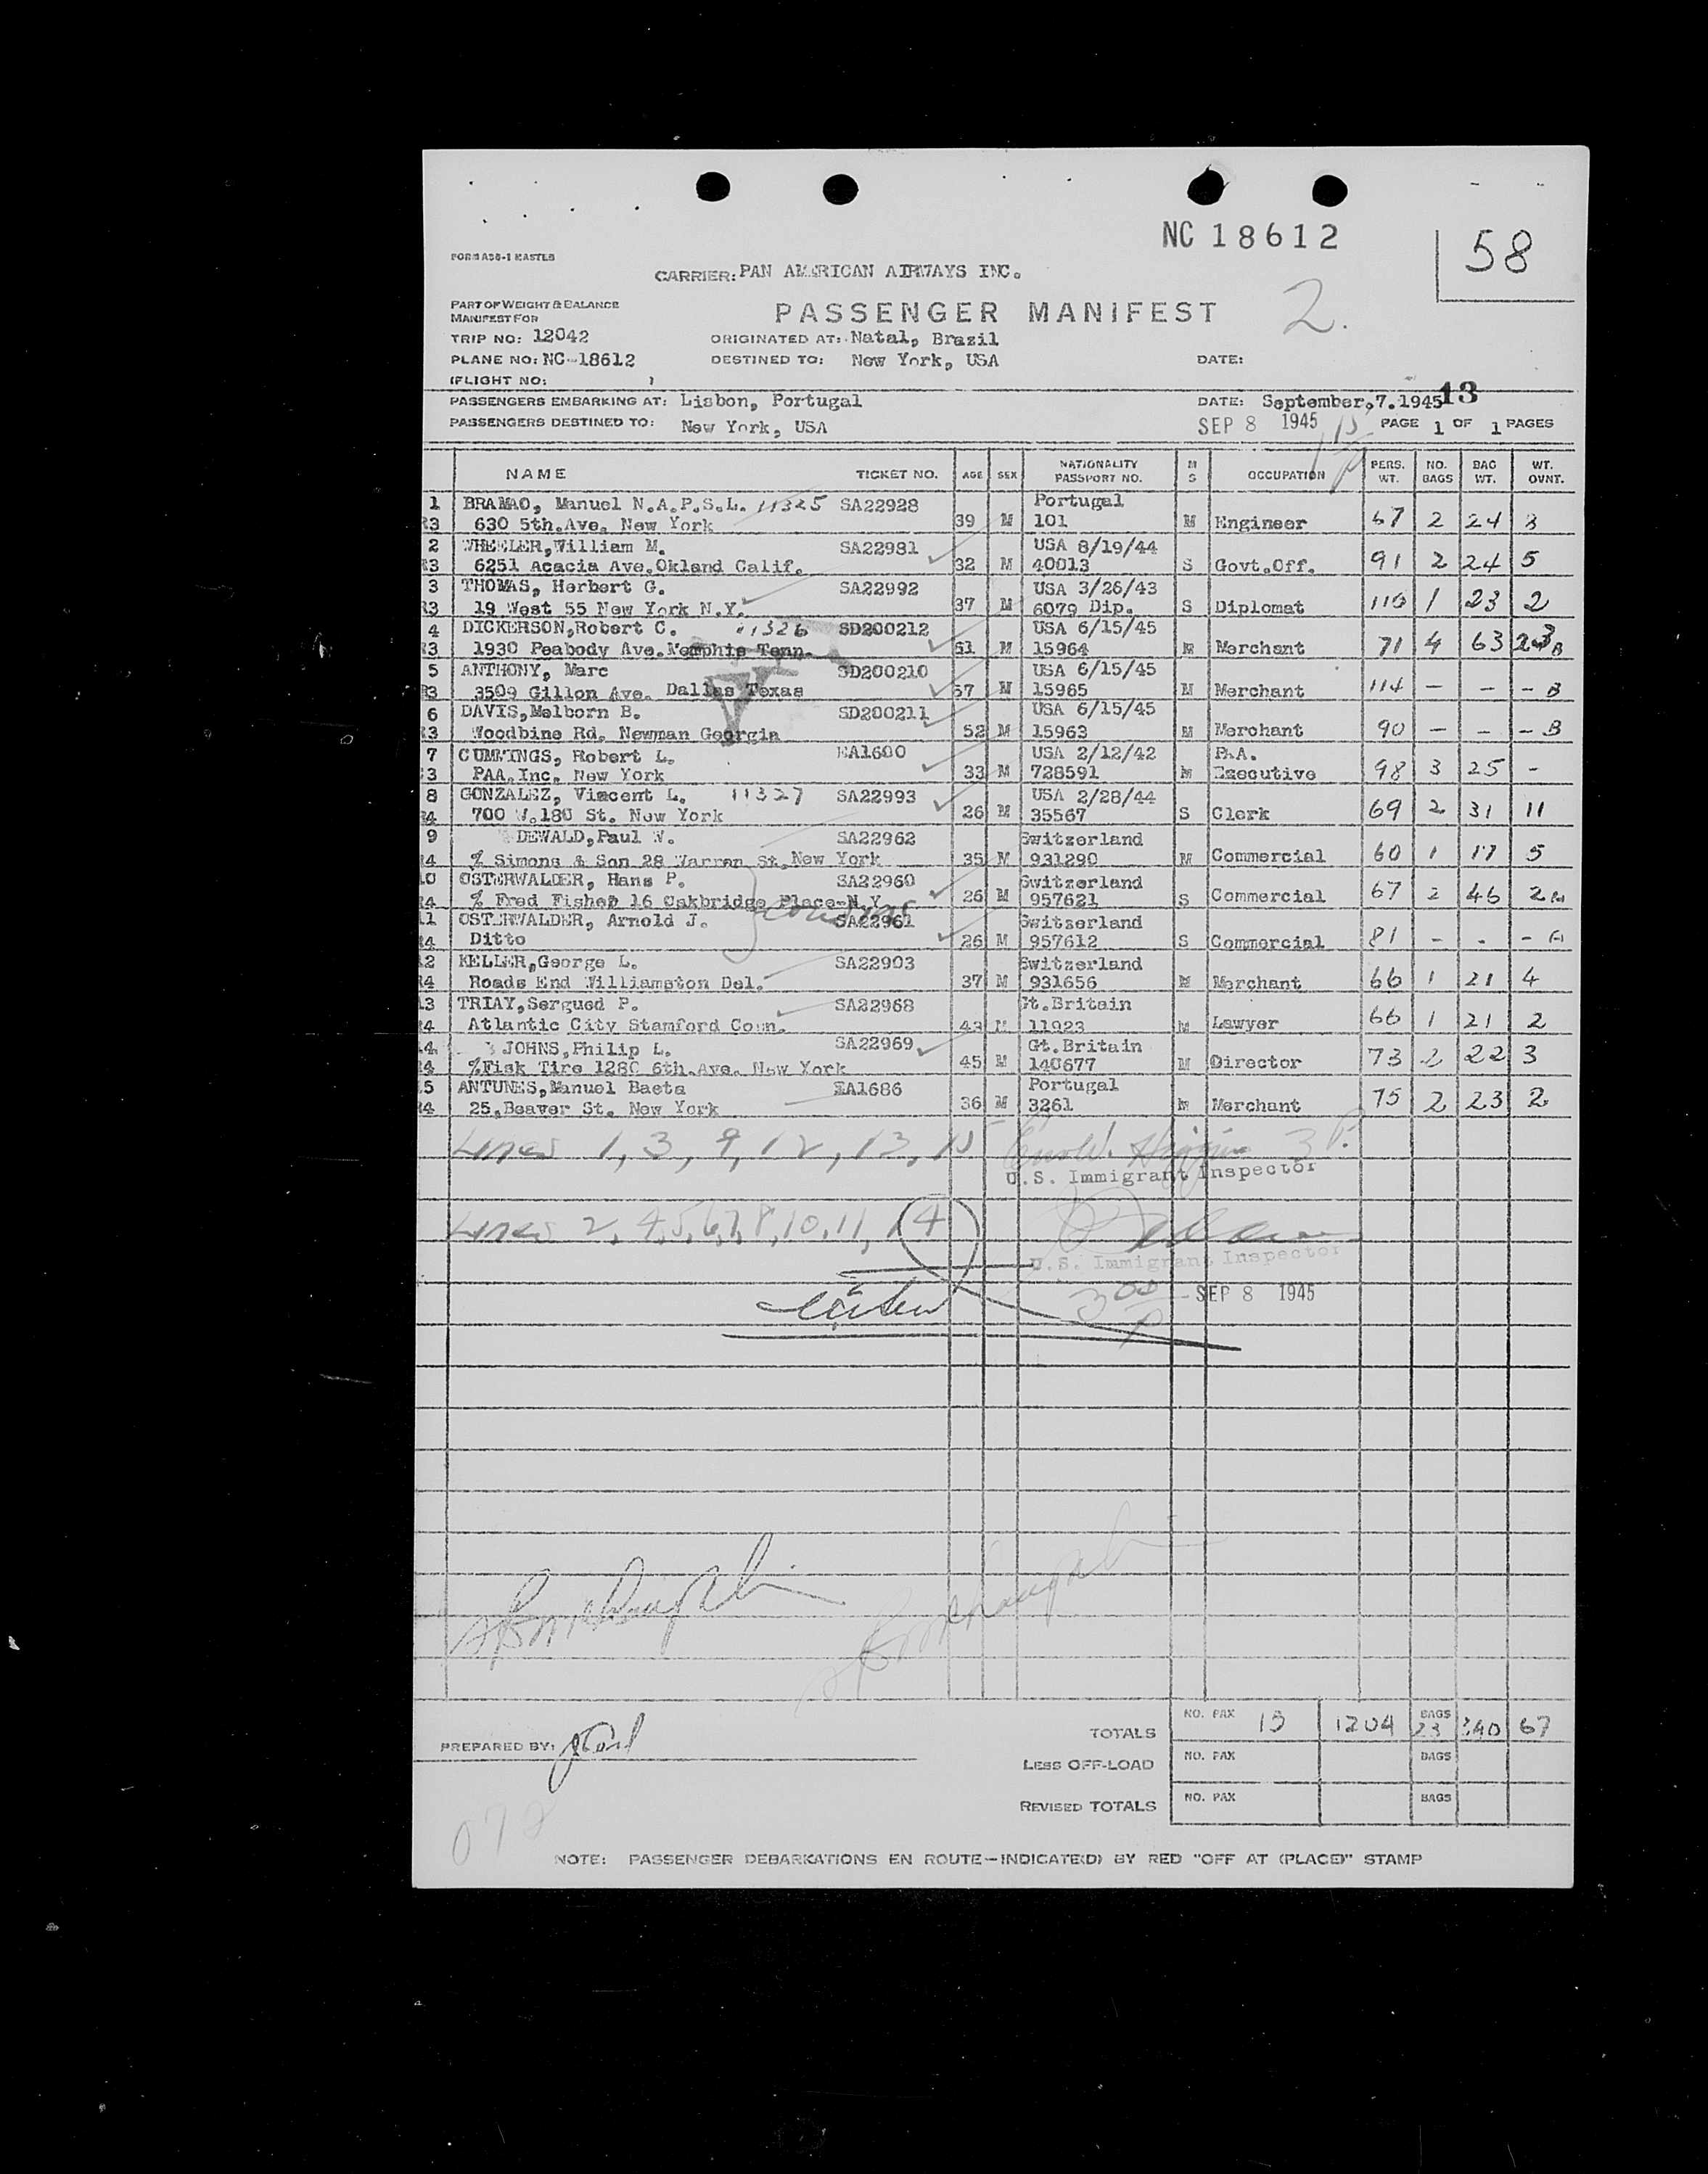 NC 18612
58
FORM A30-1 MASTER
CARRIER: PAN AMERICAN AIRWAYS INC.
PART OF WEIGHT & BALANCE
MANIFEST FOR
PASSENGER MANIFEST 2.
TRIP NO: 12042 ORIGINATED AT: Natal, Brazil
PLANE NO: NC-18612 DESTINED TO: New York, USA DATE:
(FLIGHT NO: )
13
PASSENGERS EMBARKING AT: Lisbon, Portugal DATE: September,7.1945
PASSENGERS DESTINED TO: New York, USA SEP 8 1945 PAGE 1 OF 1 PAGES
NAME TICKET NO. AGE SEX NATIONALITY PASSPORT NO. M S OCCUPATION PERS. WT. NO. BAGS BAG WT. WT. OVNT.
1 BRAMAO, Manuel N.A.P.S.L. 11325 SA22928 Portugal
R3 630 5th.Ave. New York 39 M 101 M Engineer 67 2 24 3
2 WHEELER,William M. SA22981 USA 8/19/44
R3 6251 Acacia Ave.Okland Calif. 32 M 40013 S Govt.Off. 91 2 24 5
3 THOMAS, Herbert G. SA22992 USA 3/26/43
R3 19 West 55 New York N.Y. 37 M 6079 Dip. S Diplomat 116 1 23 2
4 DICKERSON,Robert C. 11326 SD200212 USA 6/15/45
R3 1930 Peabody Ave.Memphis Tenn. 51 M 15964 M Merchant 71 4 63 23 B
5 ANTHONY, Marc SD200210 USA 6/15/45
R3 3509 Gillon Ave. Dallas Texas 57 M 15965 M Merchant 114 - - - B
6 DAVIS,Melborn B. SD200211 USA 6/15/45
R3 Woodbine Rd. Newman Georgia 52 M 15963 M Merchant 90 - - - B
7 CUMMINGS, Robert L. EA1600 USA 2/12/42 P.A.A.
3 PAA.Inc. New York 33 M 728591 M Executive 98 3 25 -
8 GONZALEZ, Vincent L. 11327 SA22993 USA 2/28/44
R4 700 W.180 St. New York 26 M 35567 S Clerk 69 2 31 11
9 DEWALD,Paul W. SA22962 Switzerland
R4 % Simons & Son 28 Warren St.New York 35 M 931290 M Commercial 60 1 17 5
10 OSTERWALDER, Hans P. SA22960 Switzerland
R4 % Fred Fisher 16 Oakbridge Place-N.Y. 26 M 957621 S Commercial 67 2 46 2 A
cousins
11 OSTERWALDER, Arnold J. SA22961 Switzerland
R4 Ditto 26 M 957612 S Commercial 81 - - - A
12 KELLER,George L. SA22903 Switzerland
R4 Roads End Williamston Del. 37 M 931656 M Merchant 66 1 21 4
13 TRIAY,Sergued P. SA22968 Gt.Britain
R4 Atlantic City Stamford Conn. 43 M 11923 M Lawyer 66 1 21 2
14 JOHNS,Philip L. SA22969 Gt.Britain
R4 %Fisk Tire 1280 6th.Ave. New York 45 M 140677 M Director 73 2 22 3
15 ANTUNES,Manuel Baeta EA1686 Portugal
R4 25,Beaver St. New York 36 M 3261 M Merchant 75 2 23 2
Lines 1, 3, 9, 12, 13, 15 3 P.
U.S. Immigrant Inspector
Lines 2, 4,5,6,7,8,10,11, 14
U.S. Immigrant Inspector
3 00 P SEP 8 1945
TOTALS NO. PAX 15 1204 BAGS 23 340 67
PREPARED BY:
LESS OFF-LOAD NO. PAX BAGS
REVISED TOTALS NO. PAX BAGS
072
NOTE: PASSENGER DEBARKATIONS EN ROUTE—INDICATE(D) BY RED "OFF AT (PLACE)" STAMP